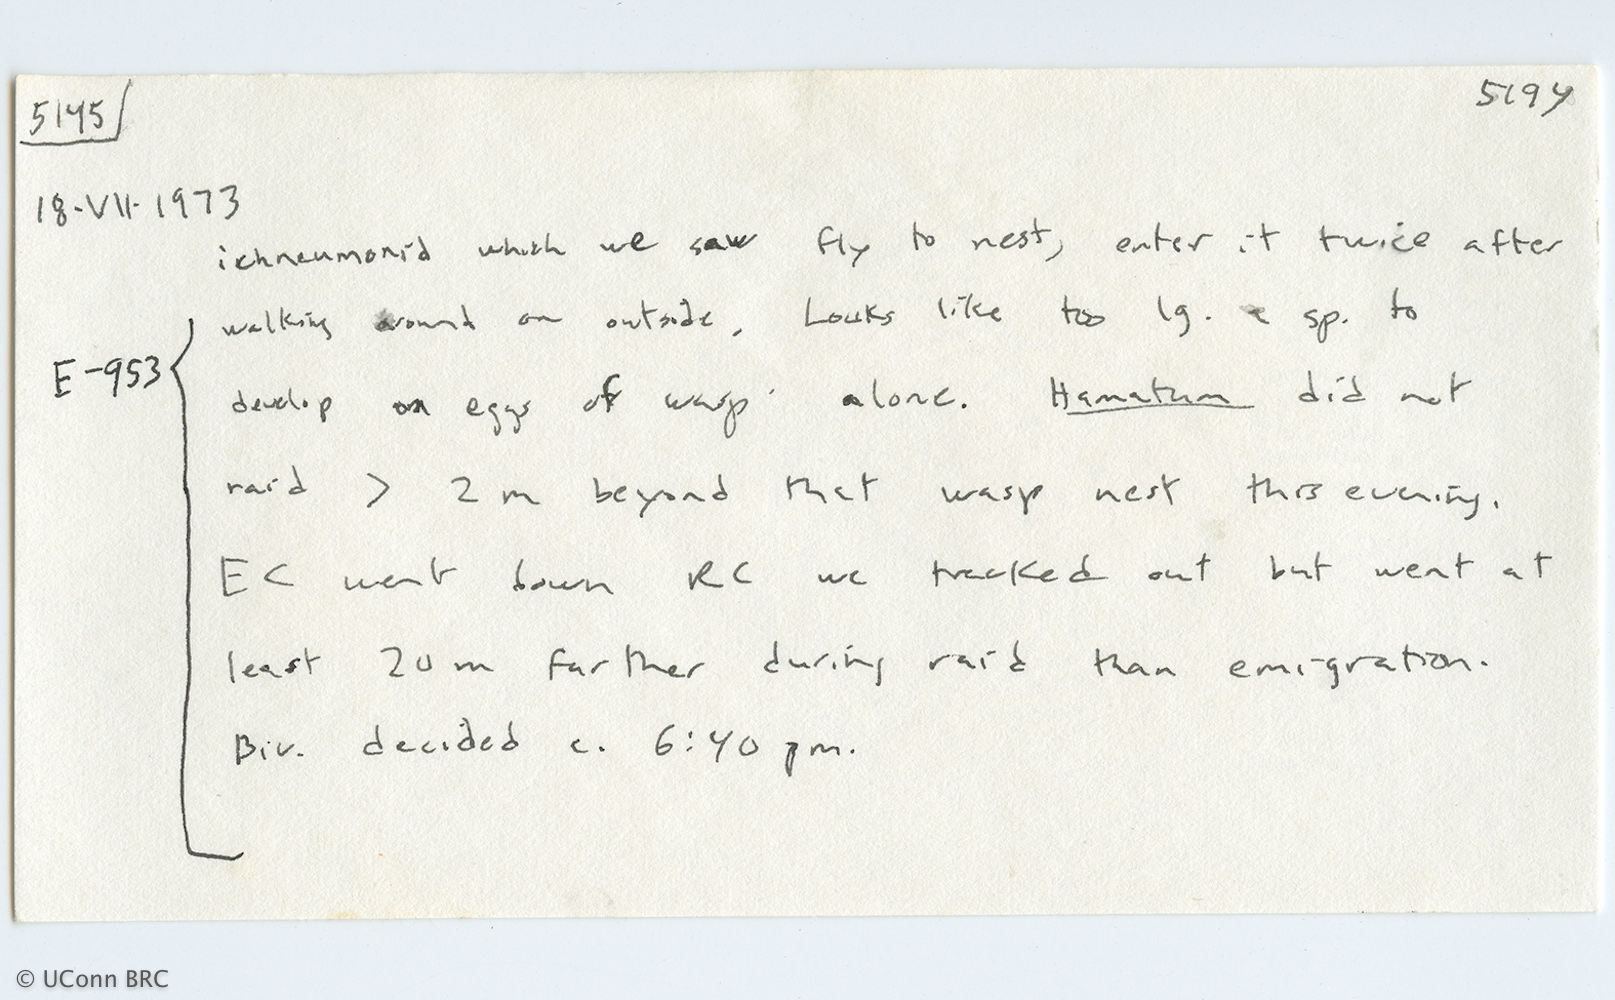 5145
5194
18·VII·1973
ichneumonid which we saw fly to nest, enter it twice after
walking around on outside. Looks like too lg. a sp. to
E-953
develop on eggs of wasp alone. Hamatum did not
raid > 2 m beyond that wasp nest this evening.
EC went down RC we tracked out but went at
least 20 m farther during raid than emigration.
Biv. decided c. 6:40 pm.
© UConn BRC